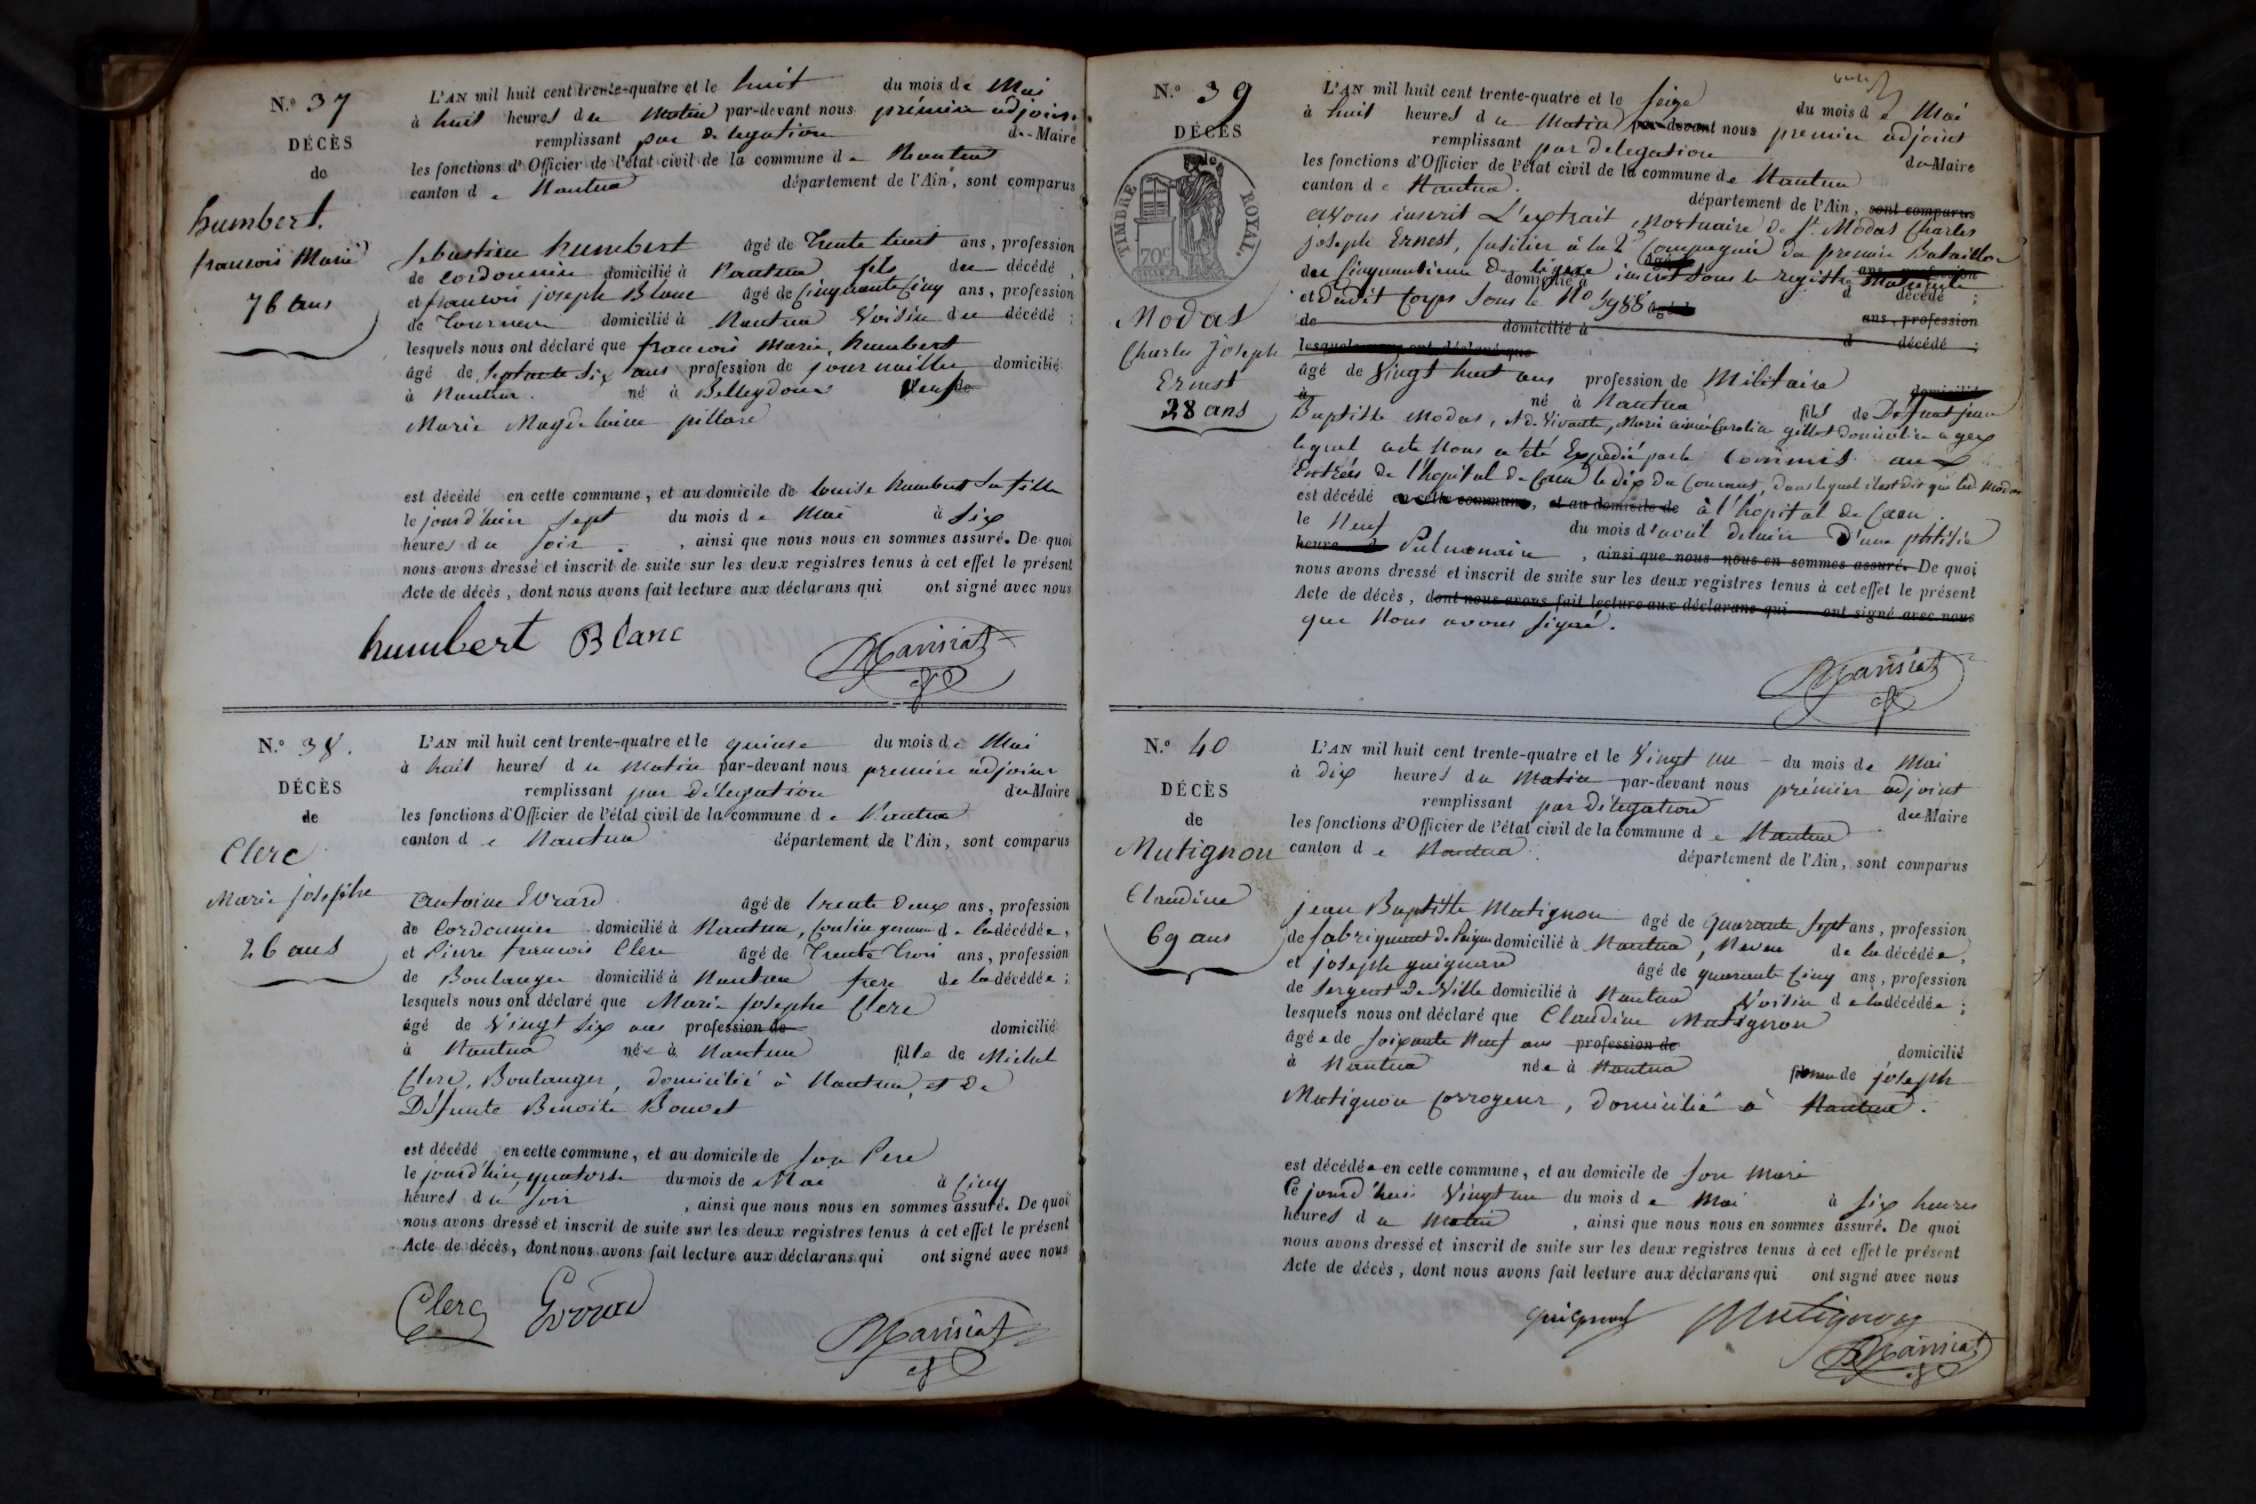 N.º 37
DÉCÈS
de
humbert.
francois Marie
76 ans
L'AN mil huit cent trente-quatre et le huit du mois de Mai
à huit heures du Matin par-devant nous prémier adjoint
remplissant par délegation du Maire
les fonctions d'Officier de l'état civil de la commune de Nantua
canton de Nantua département de l'Ain, sont comparus
Sebastien humbert âgé de Trente huit ans, profession
de cordonnier domicilié à Nantua fils du décédé,
et francois joseph Blanc âgé de Cinquante Cinq ans, profession
de Tourneur domicilié à Nantua Voisin du décédé;
lesquels nous ont déclaré que francois Marie humbert
âgé de Septante Six ans profession de journaillier domicilié
à Nantua. né à Belleydoux Veuf de
Marie Magdelaine pillard
est décédé en cette commune, et au domicile de louise humbert sa fille
le jourd'hier Sept du mois de Mai à Six
heures du soir, ainsi que nous nous en sommes assuré. De quoi
nous avons dressé et inscrit de suite sur les deux registres tenus à cet effet le présent
Acte de décès, dont nous avons fait lecture aux déclarans qui ont signé avec nous
humbert Blanc
N.º 38.
DÉCÈS
de
Clerc
Marie josephe
26 ans
L'AN mil huit cent trente-quatre et le quinse du mois de Mai
à huit heures du Matin par-devant nous premier adjoint
remplissant par délegation du Maire
les fonctions d'Officier de l'état civil de la commune de Nantua
canton de Nantua département de l'Ain, sont comparus
Antoine Evrard âgé de trente Deux ans, profession
de Cordonnier domicilié à Nantua, Cousin germain de la décédée,
et Pierre francois Clerc âgé de Trente Trois ans, profession
de Boulanger domicilié à Nantua frere de la décédée;
lesquels nous ont déclaré que Marie Josephe Clerc
âgé de Vingt Six ans profession de domicilié
à Nantua née à Nantua fille de Michel
Clerc, Boulanger, domicilié à Nantua, et De
Défunte Benoite Bouvet
est décédé en cette commune, et au domicile de son Pere
le jourd'hier quatorse du mois de Mai à Cinq
heures du soir, ainsi que nous nous en sommes assuré. De quoi
nous avons dressé et inscrit de suite sur les deux registres tenus à cet effet le présent
Acte de décès, dont nous avons fait lecture aux déclarans qui ont signé avec nous
Clerc Evrard
N.º 39
DÉCÈS
de
TIMBRE ROYAL.
70c
Modas
Charles Joseph
Ernest
28 ans
L'AN mil huit cent trente-quatre et le seize du mois de Mai
à huit heures du Matin par-devant nous premier adjoint
remplissant par délegation du Maire
les fonctions d'Officier de l'état civil de la commune de Nantua
canton de Nantua. département de l'Ain, sont comparus
avons inscrit L'extrait Mortuaire de Sr Modas Charles
joseph Ernest, fusilier à la 2e Compagnie du premier Bataillon
du Cinquantieme De ligne inscrit sous le registre Matricule
et Dudit Corps sous le No
de domicilié à d décédé;
lesquels nous ont déclaré que
âgé de Vingt huit ans profession de Militaire domicilié
à né à Nantua fils de Défunt jean
Baptiste Modas, et De Vivante, Marie aimée Caroline gillet domiciliée a gex
lequel acte Nous a été Expédié par le Commis aux
Entrées de l'hopital de Caen le dix du Courant, dans lequel il est dit que led. Modas
est décédé en cette commune, et au domicile de à l'hopital de Caen.
le Neuf du mois d'avril dernier D'une phtisie
heure d Pulmonaire, ainsi que nous nous en sommes assuré. De quoi
nous avons dressé et inscrit de suite sur les deux registres tenus à cet effet le présent
Acte de décès, dont nous avons fait lecture aux déclarans qui ont signé avec nous
que Nous avons signé.
N.º 40
DÉCÈS
de
Mutignon
Claudine
69 ans
L'AN mil huit cent trente-quatre et le Vingt un du mois de Mai
à dix heures du Matin par-devant nous prémier adjoint
remplissant par délegation du Maire
les fonctions d'Officier de l'état civil de la commune de Nantua
canton de Nantua. département de l'Ain, sont comparus
jean Baptiste Mutignon âgé de quarante Sept ans, profession
de fabriquant de Peignes domicilié à Nantua, Neveu de la décédée,
et joseph guignard âgé de quarante Cinq ans, profession
de Sergent De Ville domicilié à Nantua Voisin de la décédée;
lesquels nous ont déclaré que Claudine Mutignon
âgée de soixante Neuf ans profession de domicilié
à Nantua née à Nantua femme de joseph
Mutignon Corroyeur, domicilié à Nantua.
est décédée en cette commune, et au domicile de son Mari
Ce jourd'hui Vingt un du mois de Mai à Six heures
heures du Matin, ainsi que nous nous en sommes assuré. De quoi
nous avons dressé et inscrit de suite sur les deux registres tenus à cet effet le présent
Acte de décès, dont nous avons fait lecture aux déclarans qui ont signé avec nous
guignard Mutignon